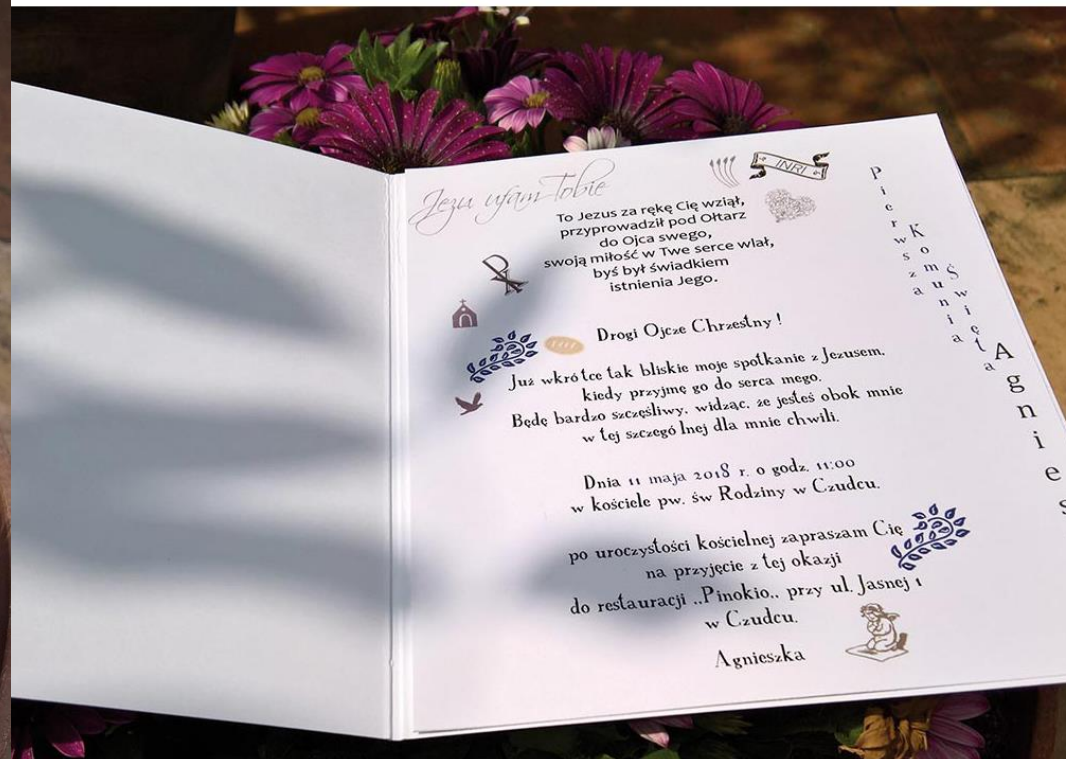 Jezu ufam Tobie
INRI
To Jezus za rękę Cię wziął,
przyprowadził pod Ołtarz
do Ojca swego,
swoją miłość w Twe serce wlał,
byś był świadkiem
istnienia Jego.
Drogi Ojcze Chrzestny !
Już wkrótce tak bliskie moje spotkanie z Jezusem,
kiedy przyjmę go do serca mego.
Będę bardzo szczęśliwy, widząc, że jesteś obok mnie
w tej szczególnej dla mnie chwili.
Dnia 11 maja 2018 r. o godz. 11:00
w kościele pw. św Rodziny w Czudcu.
po uroczystości kościelnej zapraszam Cię
na przyjęcie z tej okazji
do restauracji ,,Pinokio,, przy ul. Jasnej 1
w Czudcu.
Agnieszka
Pierwsza
Komunia
Święta
Agnies